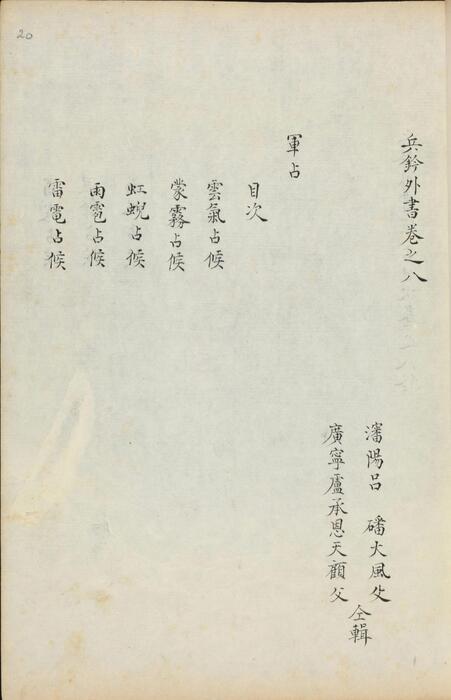 20
兵鈐外書卷之八
瀋陽呂 磻大風父
廣寧盧承恩天顧父
仝輯
軍占
目次
雲氣占候
蒙霧占候
虹蜺占候
雨雹占候
雷電占候